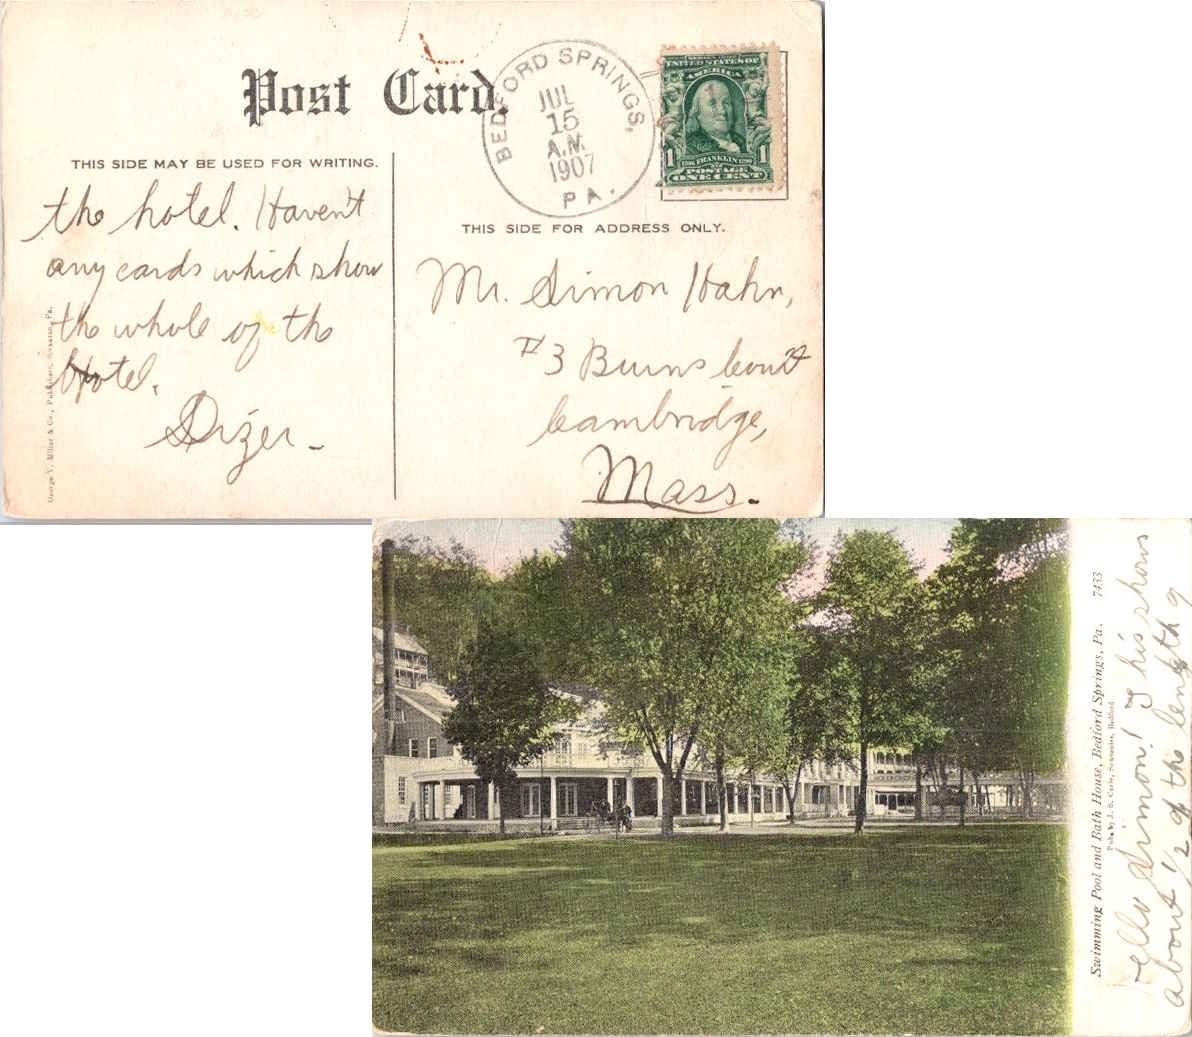 Post Card.
BEDFORD SPRINGS,
JUL
15
A.M.
1907
PA.
UNITED STATES OF
AMERICA
FRANKLIN
1 POSTAGE 1
ONE CENT
THIS SIDE MAY BE USED FOR WRITING.
the hotel. Haven't
any cards which show
the whole of the
Hotel.
Dizer -
George V. Millar & Co., Publishers, Scranton, Pa.
THIS SIDE FOR ADDRESS ONLY.
Mr. Simon Hahn,
#3 Burns Court
Cambridge,
Mass.
Swimming Pool and Bath House, Bedford Springs, Pa. 7433
Pub. by J. G. Souvenirs, Bedford
Hello Simon! This shows
about 1/2 of the length of